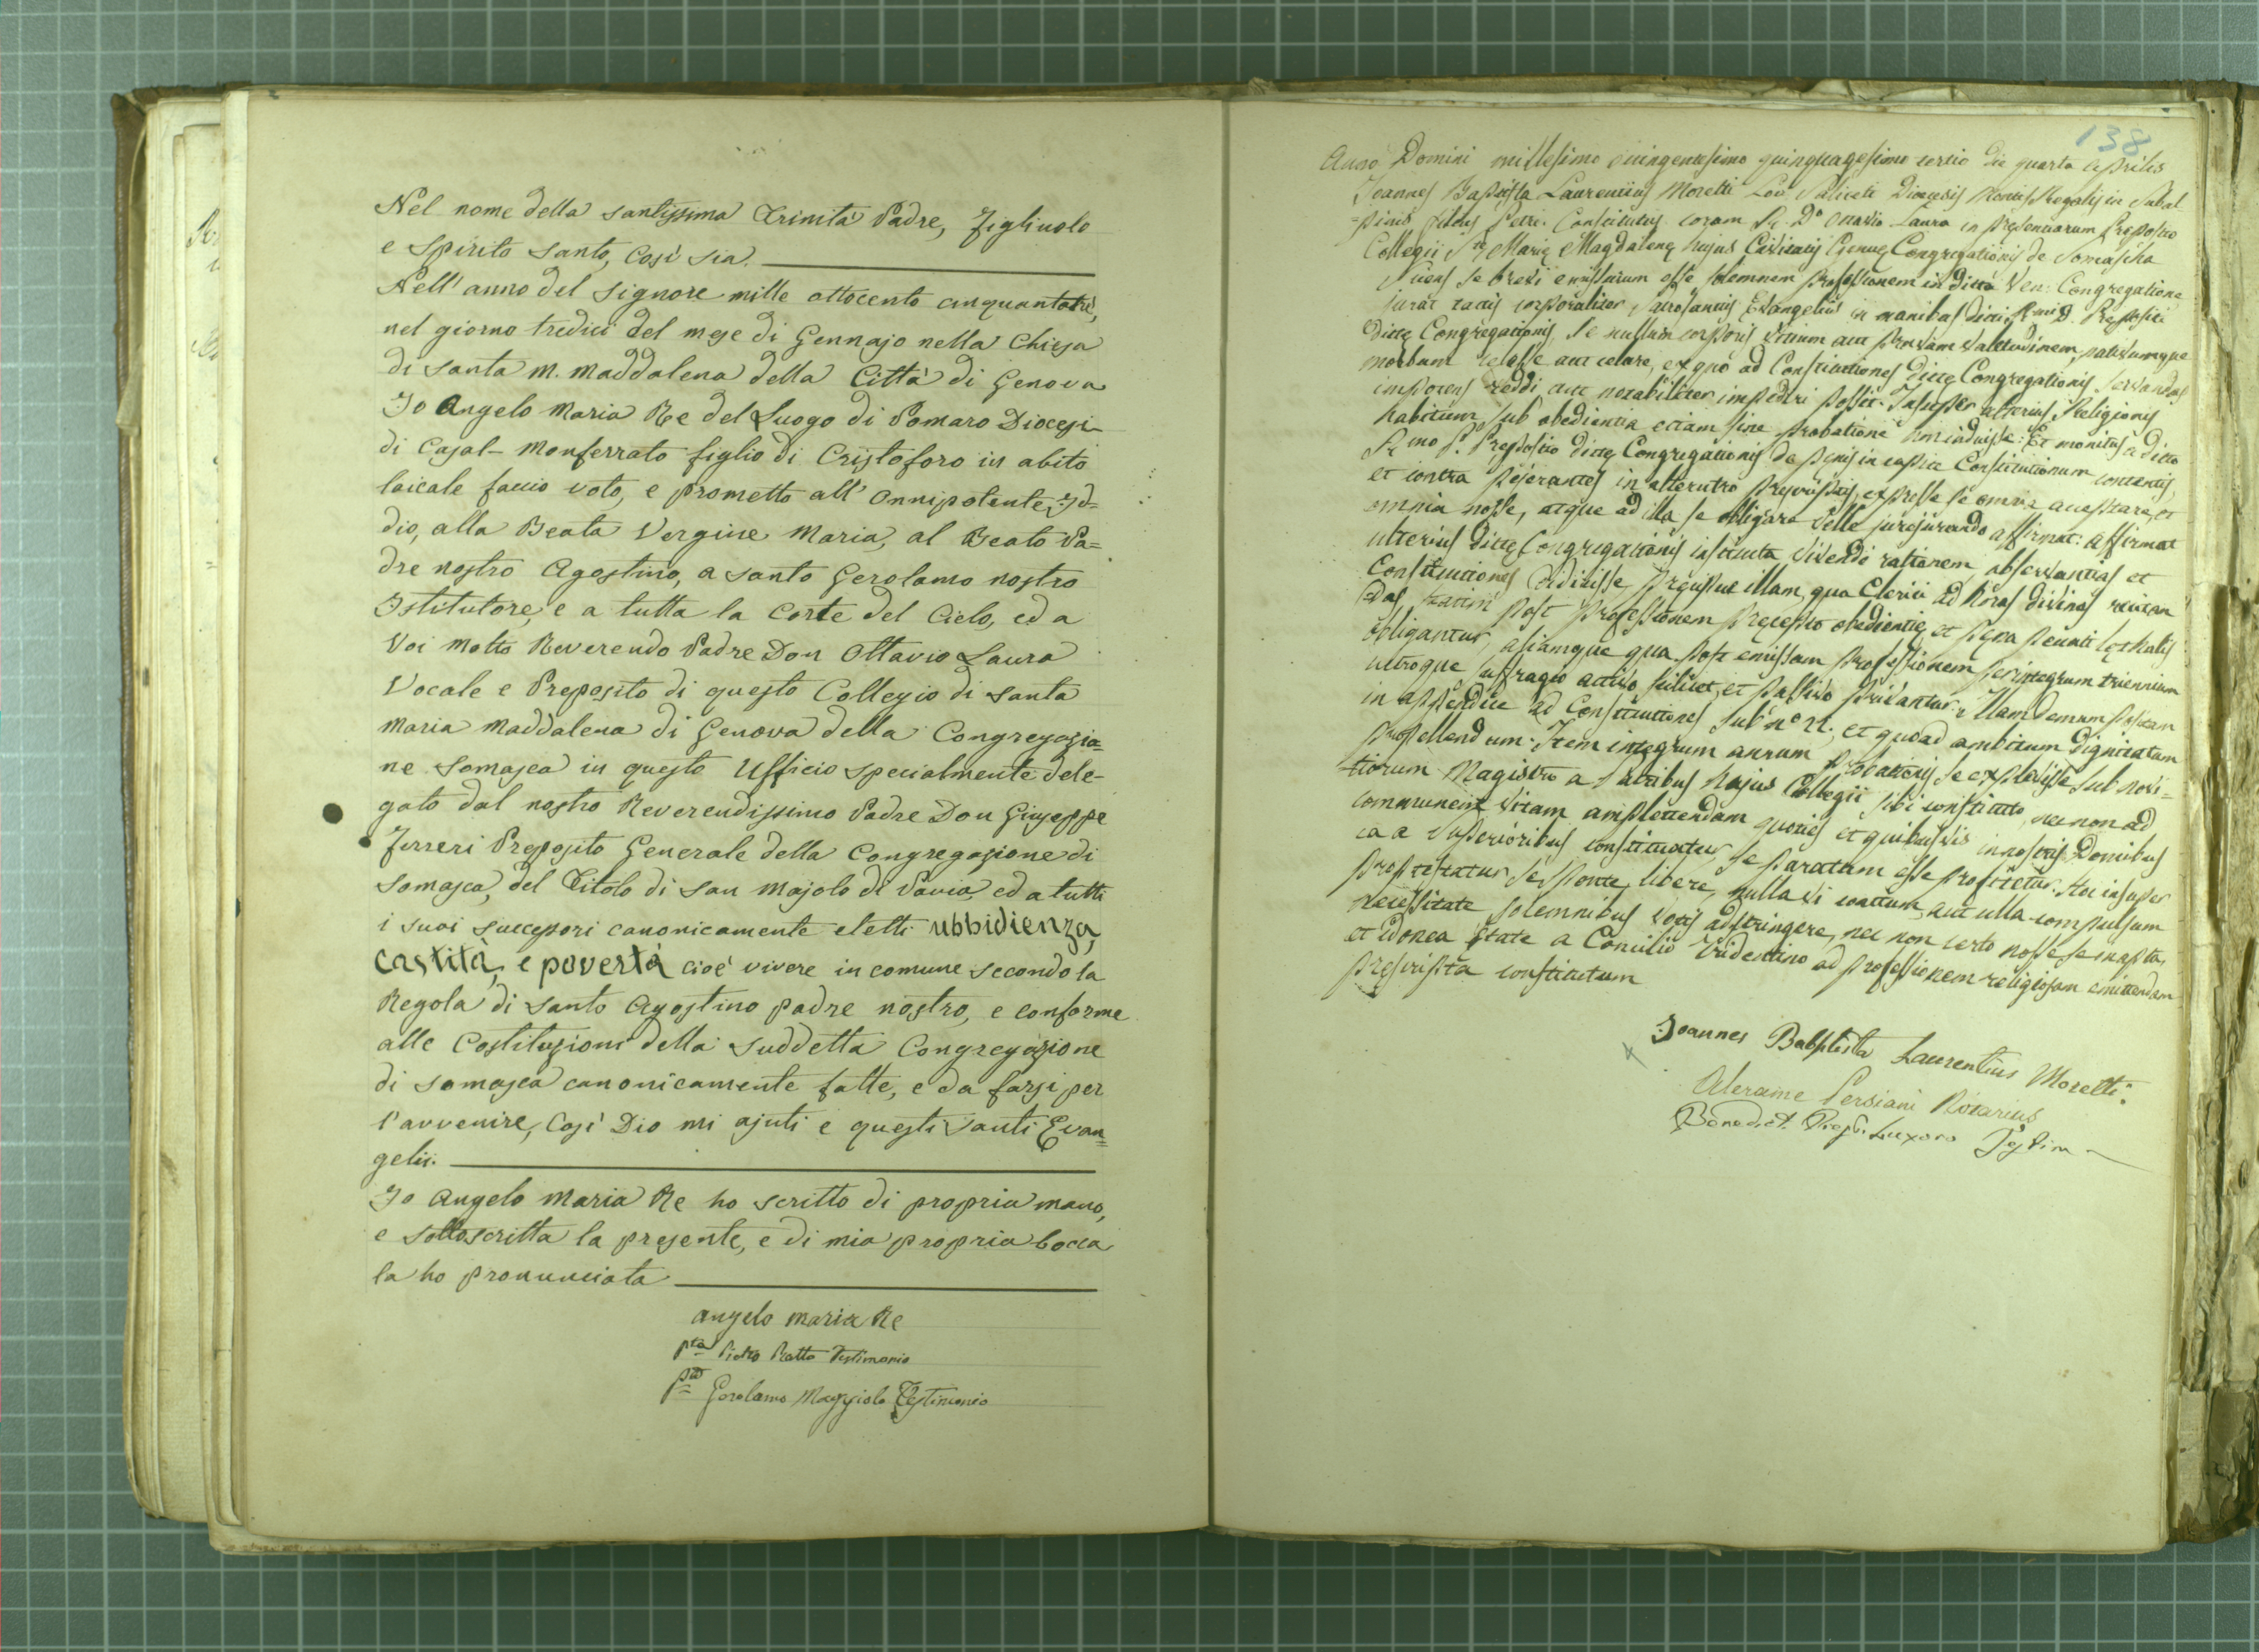 Nel nome della santissima Trinità Padre, Figliuolo
e Spirito Santo, Così sia.
Nell' anno del Signore mille ottocento cinquantatrè,
nel giorno tredici del mese di Gennajo nella Chiesa
di Santa M. Maddalena della Città di Genova
Io Angelo Maria Re del Luogo di Pomaro Diocesi
di Casal-Monferrato figlio di Cristoforo in abito
laicale faccio voto, e prometto all' Onnipotente Id=
dio, alla Beata Vergine Maria, al Beato Pa=
dre nostro Agostino, a Santo Gerolamo nostro
Istitutore, e a tutta la Corte del Cielo, ed a
Voi Molto Reverendo Padre Don Ottavio Laura
Vocale e Preposito di questo Collegio di Santa
Maria Maddalena di Genova della Congregazio=
ne Somasca in questo Ufficio specialmente dele-
gato dal nostro Reverendissimo Padre Don Giuseppe
Ferreri Preposito Generale della Congregazione di
Somasca, del Titolo di San Majolo di Pavia, ed a tutti
i suoi successori canonicamente eletti ubbidienza,
castità, e povertà cioè vivere in comune secondo la
Regola di Santo Agostino padre nostro, e conforme
alle Costituzioni della suddetta Congregazione
di Somasca canonicamente fatte, e da farsi per
l'avvenire, Così Dio mi ajuti e questi Santi Evan=
gelii.
Io Angelo Maria Re ho scritto di propria mano,
e sottoscritta la presente, e di mia propria bocca
la ho pronunciata
Angelo Maria Re
Pietro Ratto Testimonio
Gerolamo Maggiolo Testimonio
138
Anno Domini millesimo quinquagesimo tertio die quarta Aprilis
Joannes Baptista Laurentius Moretti Diœcesis Montis Regalis in Subal
=pinis filius Petri. Constitutus coram Laura in presentiarum Preposito
Collegii Marię Magdalenę hujus Civitatis Genuę Congregationis de Somascha
se brevi emissurum esse solemnem professionem in dicta Ven: Congregatione
jurat tactis corporaliter sacrosanctis Evangeliis in manibus dicti Prępositi
dictę Congregationis, se nullum corporis vitium aut pravam valetudinem, patiturumque
morbum aut celare, ex quo ad Constitutiones dictę Congregationis servandas
impotens reddi aut notabiliter impediri possit. Insuper alterius Religionis
habitum sub obedientia etiam sine probatione a dicto
Preposito dictę Congregationis de pęnis in capite Constitutionum contentis,
et contra in alterutro expresse se omnia acceptare, et
omnia nosse, atque ad illa se obligare velle jurejurando affirmat: affirmat
ulterius dictę Congregationis instituta vivendi rationem, observantias et
Constitutiones illam, qua Clerici ad horas divinas recitan
das post professionem pręcepto obedientię et pęna
obligantur, qua post emissam professionem per integrum triennium
utroque suffragio activo scilicet, et passivo privantur: illam demum positam
in appendice ad Constitutiones sub n° et quoad ambitum dignitatum
propellendum. Item integrum annum probationis se explevisse sub novi=
tiorum Magistro a Patribus hujus Collegii sibi constituto, nec non ad
communem vitam amplectendam quoties et quibusvis in nostris Domibus
ea a Superioribus constituatur, se paratum esse profitetur. insuper
protestatur se sponte, libere, nulla vi coactum, aut ulla compulsum
necessitate solemnibus votis adstringere, nec non certo nosse se
et idonea ętate a Concilio Tridentino ad professionem religiosam emittendam
pręscripta constitutum
Joannes Baptista Laurentius Moretti.
Persiani Notarius
Benedict. Luxoro